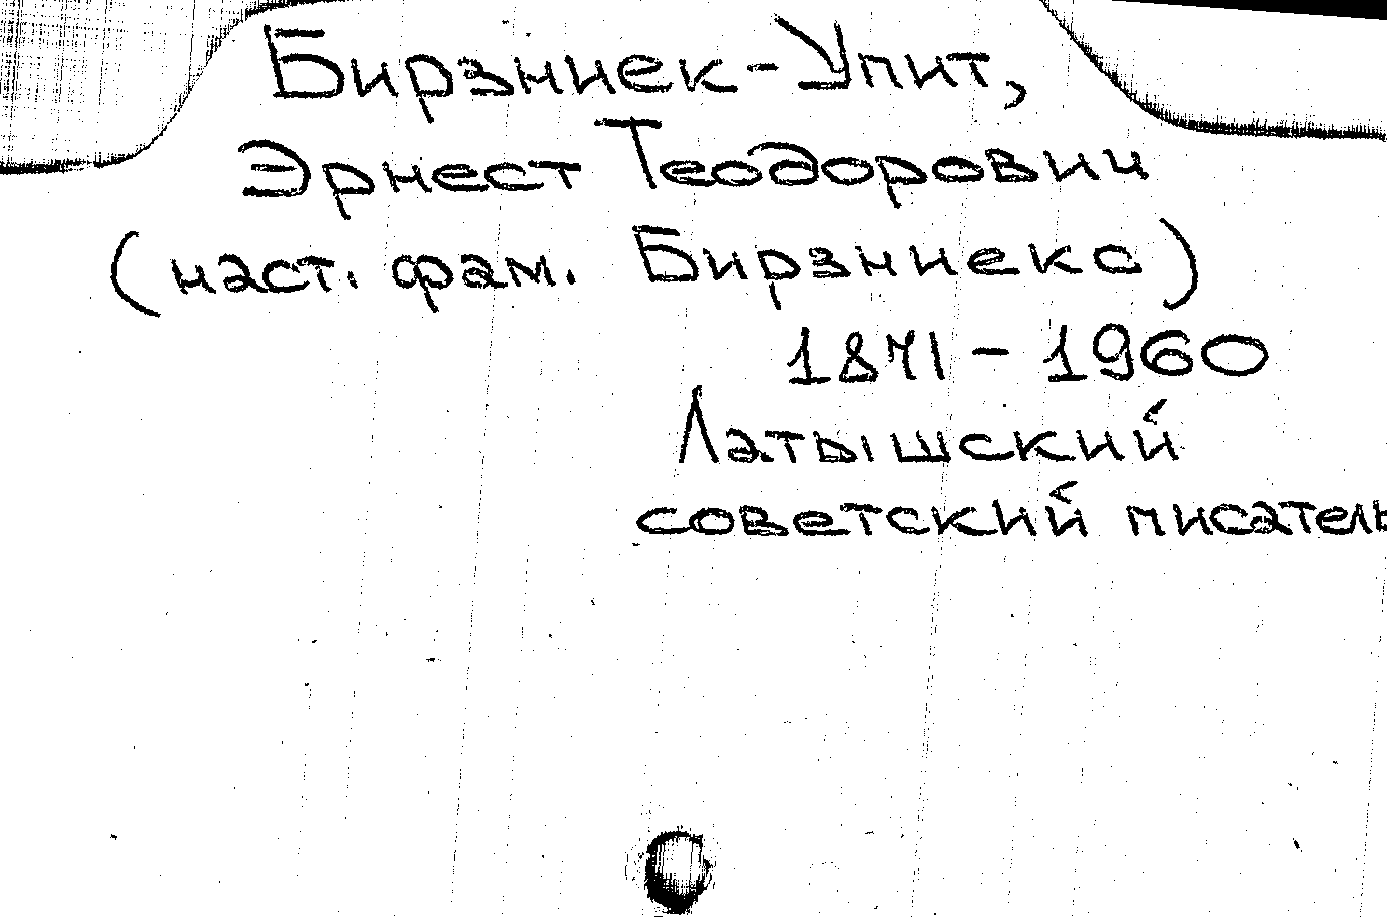 Бирзниек-Упит,
Эрнест Теодорович
(наст. фам. Бирзниекс)
1871-1960
Латышский
советский писатель